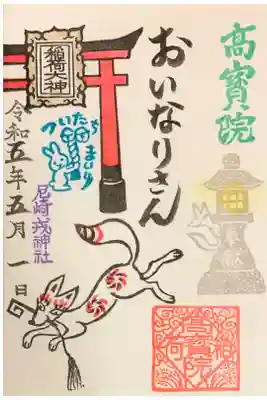 高寳院
おいなりさん
稲荷大神
ついたちまいり
令和五年五月一日
尼崎戎神社